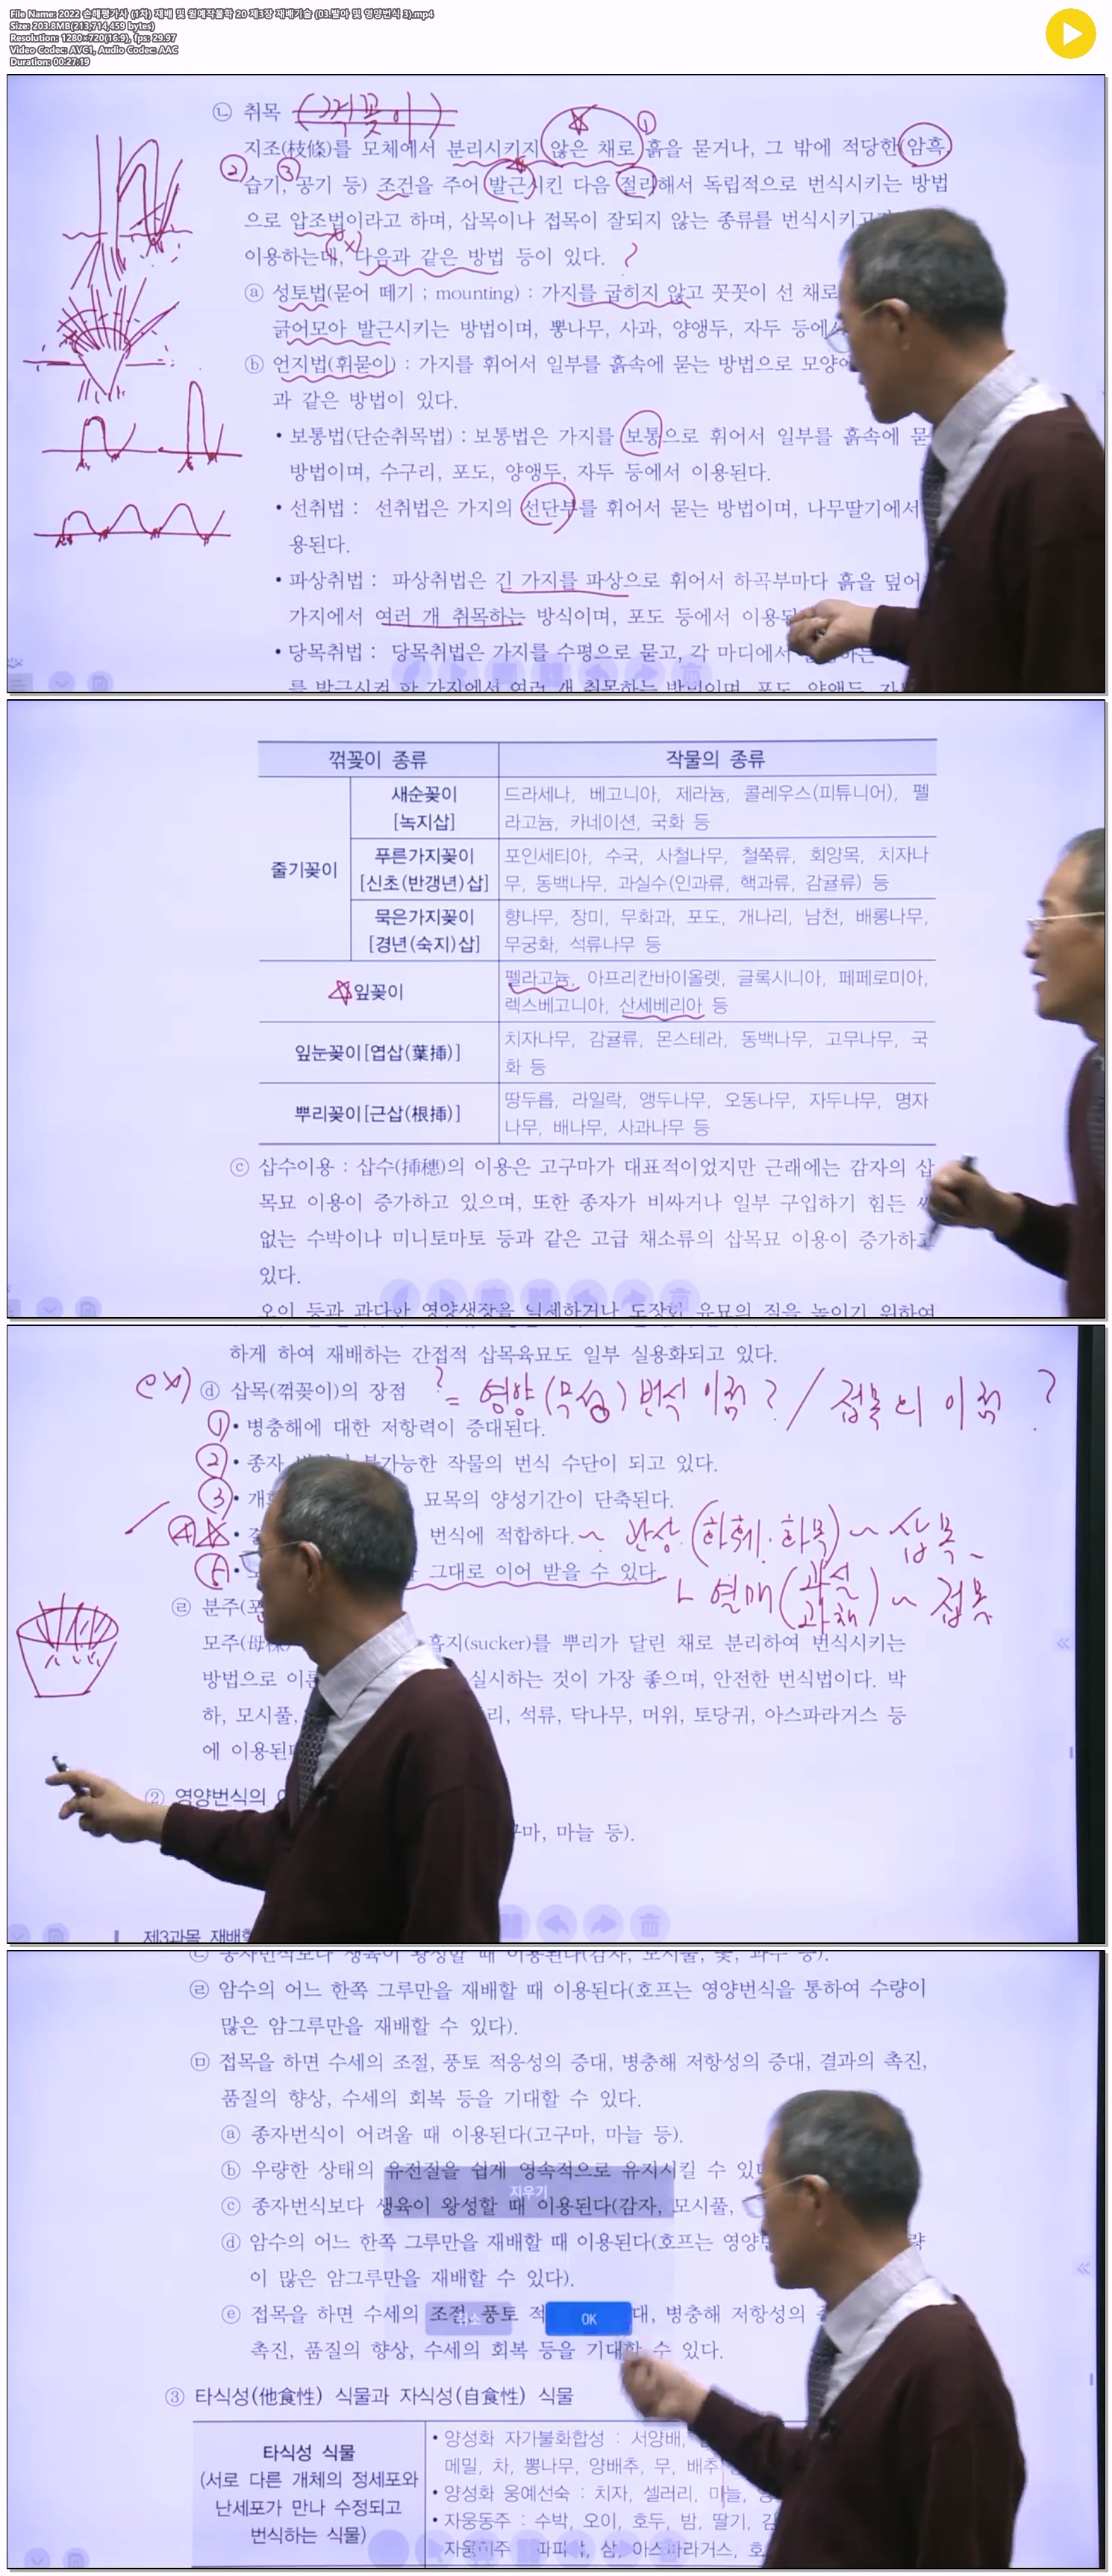 File Name: 2022 손해평가사 (1차) 재배 및 원예작물학 20 제3장 재배기술 (03.발아 및 영양번식 3).mp4
Size: 203.8MB(213,714,459 bytes)
Resolution: 1280×720(16:9), fps: 29.97
Video Codec: AVC1, Audio Codec: AAC
Duration: 00:27:19
㉡ 취목 (꺾꽂이)
지조(枝條)를 모체에서 분리시키지 않은 채로 흙을 묻거나, 그 밖에 적당한(암흑, ①
② 습기, ③ 공기 등) 조건을 주어 발근시킨 다음 절리해서 독립적으로 번식시키는 방법
으로 압조법이라고 하며, 삽목이나 접목이 잘되지 않는 종류를 번식시키고
이용하는데, 다음과 같은 방법 등이 있다. ?
ⓐ 성토법(묻어 떼기 ; mounting) : 가지를 굽히지 않고 꼿꼿이 선 채로
긁어모아 발근시키는 방법이며, 뽕나무, 사과, 양앵두, 자두 등에
ⓑ 언지법(휘묻이) : 가지를 휘어서 일부를 흙속에 묻는 방법으로 모양
과 같은 방법이 있다.
• 보통법(단순취목법) : 보통법은 가지를 보통으로 휘어서 일부를 흙속에 묻
방법이며, 수구리, 포도, 양앵두, 자두 등에서 이용된다.
• 선취법 : 선취법은 가지의 선단부를 휘어서 묻는 방법이며, 나무딸기에서
용된다.
• 파상취법 : 파상취법은 긴 가지를 파상으로 휘어서 하곡부마다 흙을 덮어
가지에서 여러 개 취목하는 방식이며, 포도 등에서 이용된
• 당목취법 : 당목취법은 가지를 수평으로 묻고, 각 마디에서
를 발근시켜 한 가지에서 여러 개 취목하는 방법이며, 포도, 양앵두,
꺾꽂이 종류 작물의 종류
줄기꽂이
새순꽂이 [녹지삽]
드라세나, 베고니아, 제라늄, 콜레우스(피튜니어), 펠
라고늄, 카네이션, 국화 등
푸른가지꽂이 [신초(반갱년)삽]
포인세티아, 수국, 사철나무, 철쭉류, 회양목, 치자나
무, 동백나무, 과실수(인과류, 핵과류, 감귤류) 등
묵은가지꽂이 [경년(숙지)삽]
향나무, 장미, 무화과, 포도, 개나리, 남천, 배롱나무,
무궁화, 석류나무 등
잎꽂이
펠라고늄, 아프리칸바이올렛, 글록시니아, 페페로미아,
렉스베고니아, 산세베리아 등
잎눈꽂이[엽삽(葉揷)]
치자나무, 감귤류, 몬스테라, 동백나무, 고무나무, 국
화 등
뿌리꽂이[근삽(根揷)]
땅두릅, 라일락, 앵두나무, 오동나무, 자두나무, 명자
나무, 배나무, 사과나무 등
ⓒ 삽수이용 : 삽수(揷穗)의 이용은 고구마가 대표적이었지만 근래에는 감자의 삽
목묘 이용이 증가하고 있으며, 또한 종자가 비싸거나 일부 구입하기 힘든 씨
없는 수박이나 미니토마토 등과 같은 고급 채소류의 삽목묘 이용이 증가하고
있다.
오이 등과 과다한 영양생장을 억제하거나 도장한 유묘의 질을 높이기 위하여
하게 하여 재배하는 간접적 삽목육묘도 일부 실용화되고 있다.
ex) ⓓ 삽목(꺾꽂이)의 장점 ? = 영양(무성)번식 이점? / 접목의 이점 ?
① • 병충해에 대한 저항력이 증대된다.
② • 종자 불가능한 작물의 번식 수단이 되고 있다.
③ • 개 묘목의 양성기간이 단축된다.
④ • 번식에 적합하다. ~ 관상(화훼·화목) ~ 삽목
⑤ • 그대로 이어 받을 수 있다. 열매(과실 과채) ~ 접목
㉣ 분주(포
모주(母株) 흡지(sucker)를 뿌리가 달린 채로 분리하여 번식시키는
방법으로 이른 실시하는 것이 가장 좋으며, 안전한 번식법이다. 박
하, 모시풀, 리, 석류, 닥나무, 머위, 토당귀, 아스파라거스 등
에 이용된다
② 영양번식의
구마, 마늘 등).
제3과목 재배학
㉢ 종자번식보다 생육이 왕성할 때 이용된다(감자, 모시풀, 꽃, 과수 등).
㉣ 암수의 어느 한쪽 그루만을 재배할 때 이용된다(호프는 영양번식을 통하여 수량이
많은 암그루만을 재배할 수 있다).
㉤ 접목을 하면 수세의 조절, 풍토 적응성의 증대, 병충해 저항성의 증대, 결과의 촉진,
품질의 향상, 수세의 회복 등을 기대할 수 있다.
ⓐ 종자번식이 어려울 때 이용된다(고구마, 마늘 등).
ⓑ 우량한 상태의 유전질을 쉽게 영속적으로 유지시킬 수 있
지우기
ⓒ 종자번식보다 생육이 왕성할 때 이용된다(감자, 모시풀,
ⓓ 암수의 어느 한쪽 그루만을 재배할 때 이용된다(호프는 영양 량
이 많은 암그루만을 재배할 수 있다).
ⓔ 접목을 하면 수세의 조절, 풍토 적 대, 병충해 저항성의
취소 OK
촉진, 품질의 향상, 수세의 회복 등을 기대할 수 있다.
③ 타식성(他食性) 식물과 자식성(自食性) 식물
타식성 식물
(서로 다른 개체의 정세포와
난세포가 만나 수정되고
번식하는 식물)
• 양성화 자가불화합성 : 서양배,
메밀, 차, 뽕나무, 양배추, 무, 배추
• 양성화 웅예선숙 : 치자, 셀러리, 마늘,
• 자웅동주 : 수박, 오이, 호두, 밤, 딸기, 감
자웅이주 파파 삼, 아스파라거스, 호